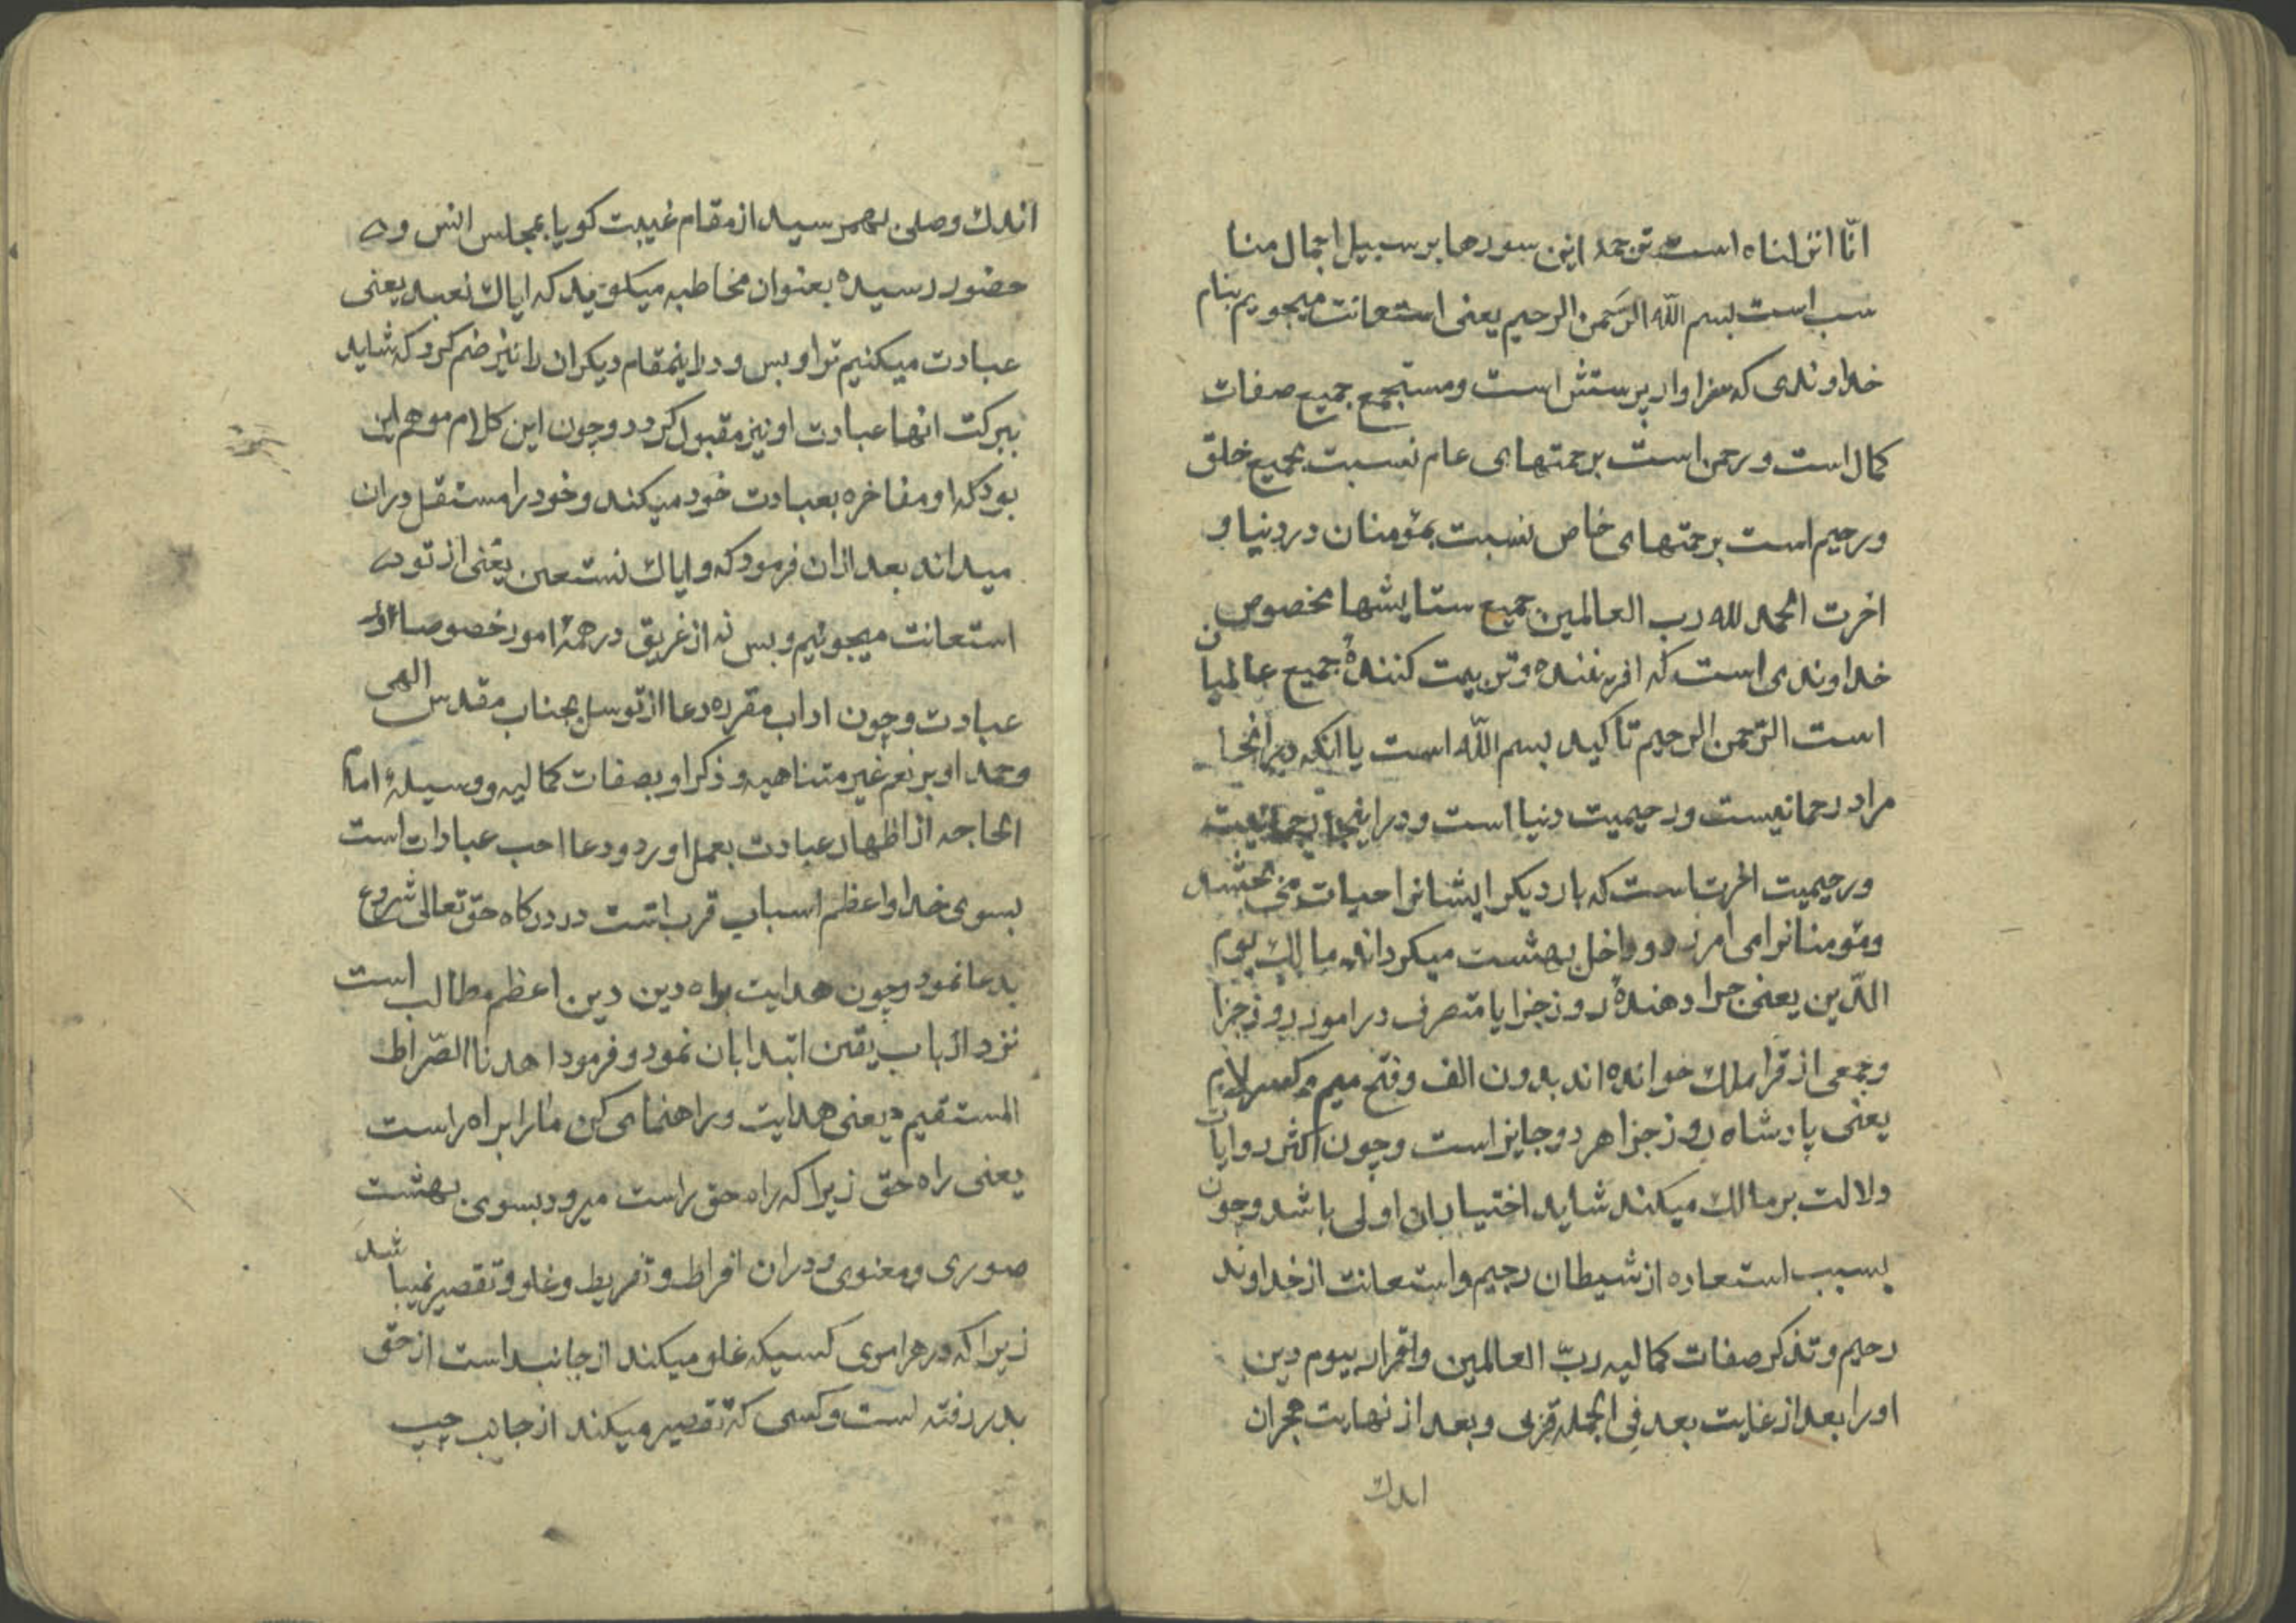 انّا انزلناه است ترجمه این سورها بر سبیل اجمال منا
سب است بسم الله الرحمن الرحیم یعنی استعانت میجویم بنام
خداوندی که سزاوار پرستش است و مستجمع جمیع صفات
کمال است و رحمن است برحمتهای عام نسبت بجمیع خلق
و رحیم است برحمتهای خاص نسبت بمؤمنان در دنیا و
اخرت الحمد لله رب العالمین جمیع ستایشها مخصوص
خداوندی است که افریننده و تربیت کنندهٔ جمیع عالمیان
است الرّحمن الرحیم تاکید بسم اللّه است یا انکه در انجا
مراد رحمانیست و رحیمیت دنیا است و در اینجا رحمانیت
و رحیمیت اخرتست که بار دیکر ایشانرا حیات می بخشد
و مؤمنانرا می امرزد و داخل بهشت میکرداند مالک یوم
الدّین یعنی جزا دهندهٔ روز جزا یا متصرف در امور روز جزا
و جمعی از قرا ملک خوانده اند بدون الف و فتح میم و کسر لام
یعنی پادشاه روز جزا هر دو جایز است و چون اکثر روایات
دلالت بر مالک میکند شاید اختیار ان اولی باشد و چون
بسبب استعاده از شیطان رجیم و استعانت از خداوند
رحیم و تذکر صفات کمالیه ربّ العالمین و اقرار بیوم دین
او را بعد از غایت بعد فی الجمله قربی و بعد از نهایت هجران
اندک
اندک وصلی بهمرسید از مقام غیبت کویا بمجلس انس و
حضور رسیده بعنوان مخاطبه میکوید که ایاک نعبد یعنی
عبادت میکنیم ترا و بس و در اینمقام دیکران را نیز ضم کرد که شاید
ببرکت انها عبادت او نیز مقبول کردد و چون این کلام موهم این
بود که او مفاخره بعبادت خود میکند و خود را مستقل در ان
میداند بعد ازان فرمود که و ایاک نستعین یعنی از تو
استعانت میجوئیم و بس نه از غریق در همهٔ امور خصوصا در
عبادت و چون اداب مقرره دعا از توسل بجناب مقدس الهی
و حمد او بر نعم غیر متناهیه و ذکر او بصفات کمالیه و وسیلهٔ امام
الحاجه از اظهار عبادت بعمل اورد و دعا احب عبادات است
بسوی خدا و اعظم اسباب قرب است در درکاه حق تعالی شروع
بدعا نمود و چون هدایت براه دین دین اعظم مطالب است
نزد ارباب یقین ابتدا بان نمود و فرمود اهدنا الصّراط
المستقیم یعنی هدایت و راهنمای کن مارا براه راست
یعنی راه حق زیرا که راه حق راست میرود بسوی بهشت
صوری و معنوی و در ان افراط و تفریط و غلو و تقصیر نمیباشد
زیرا که در هر اموی کسیکه غلو میکند از جانب است از حق
بدر رفته است و کسی که تقصیر میکند از جانب چپ